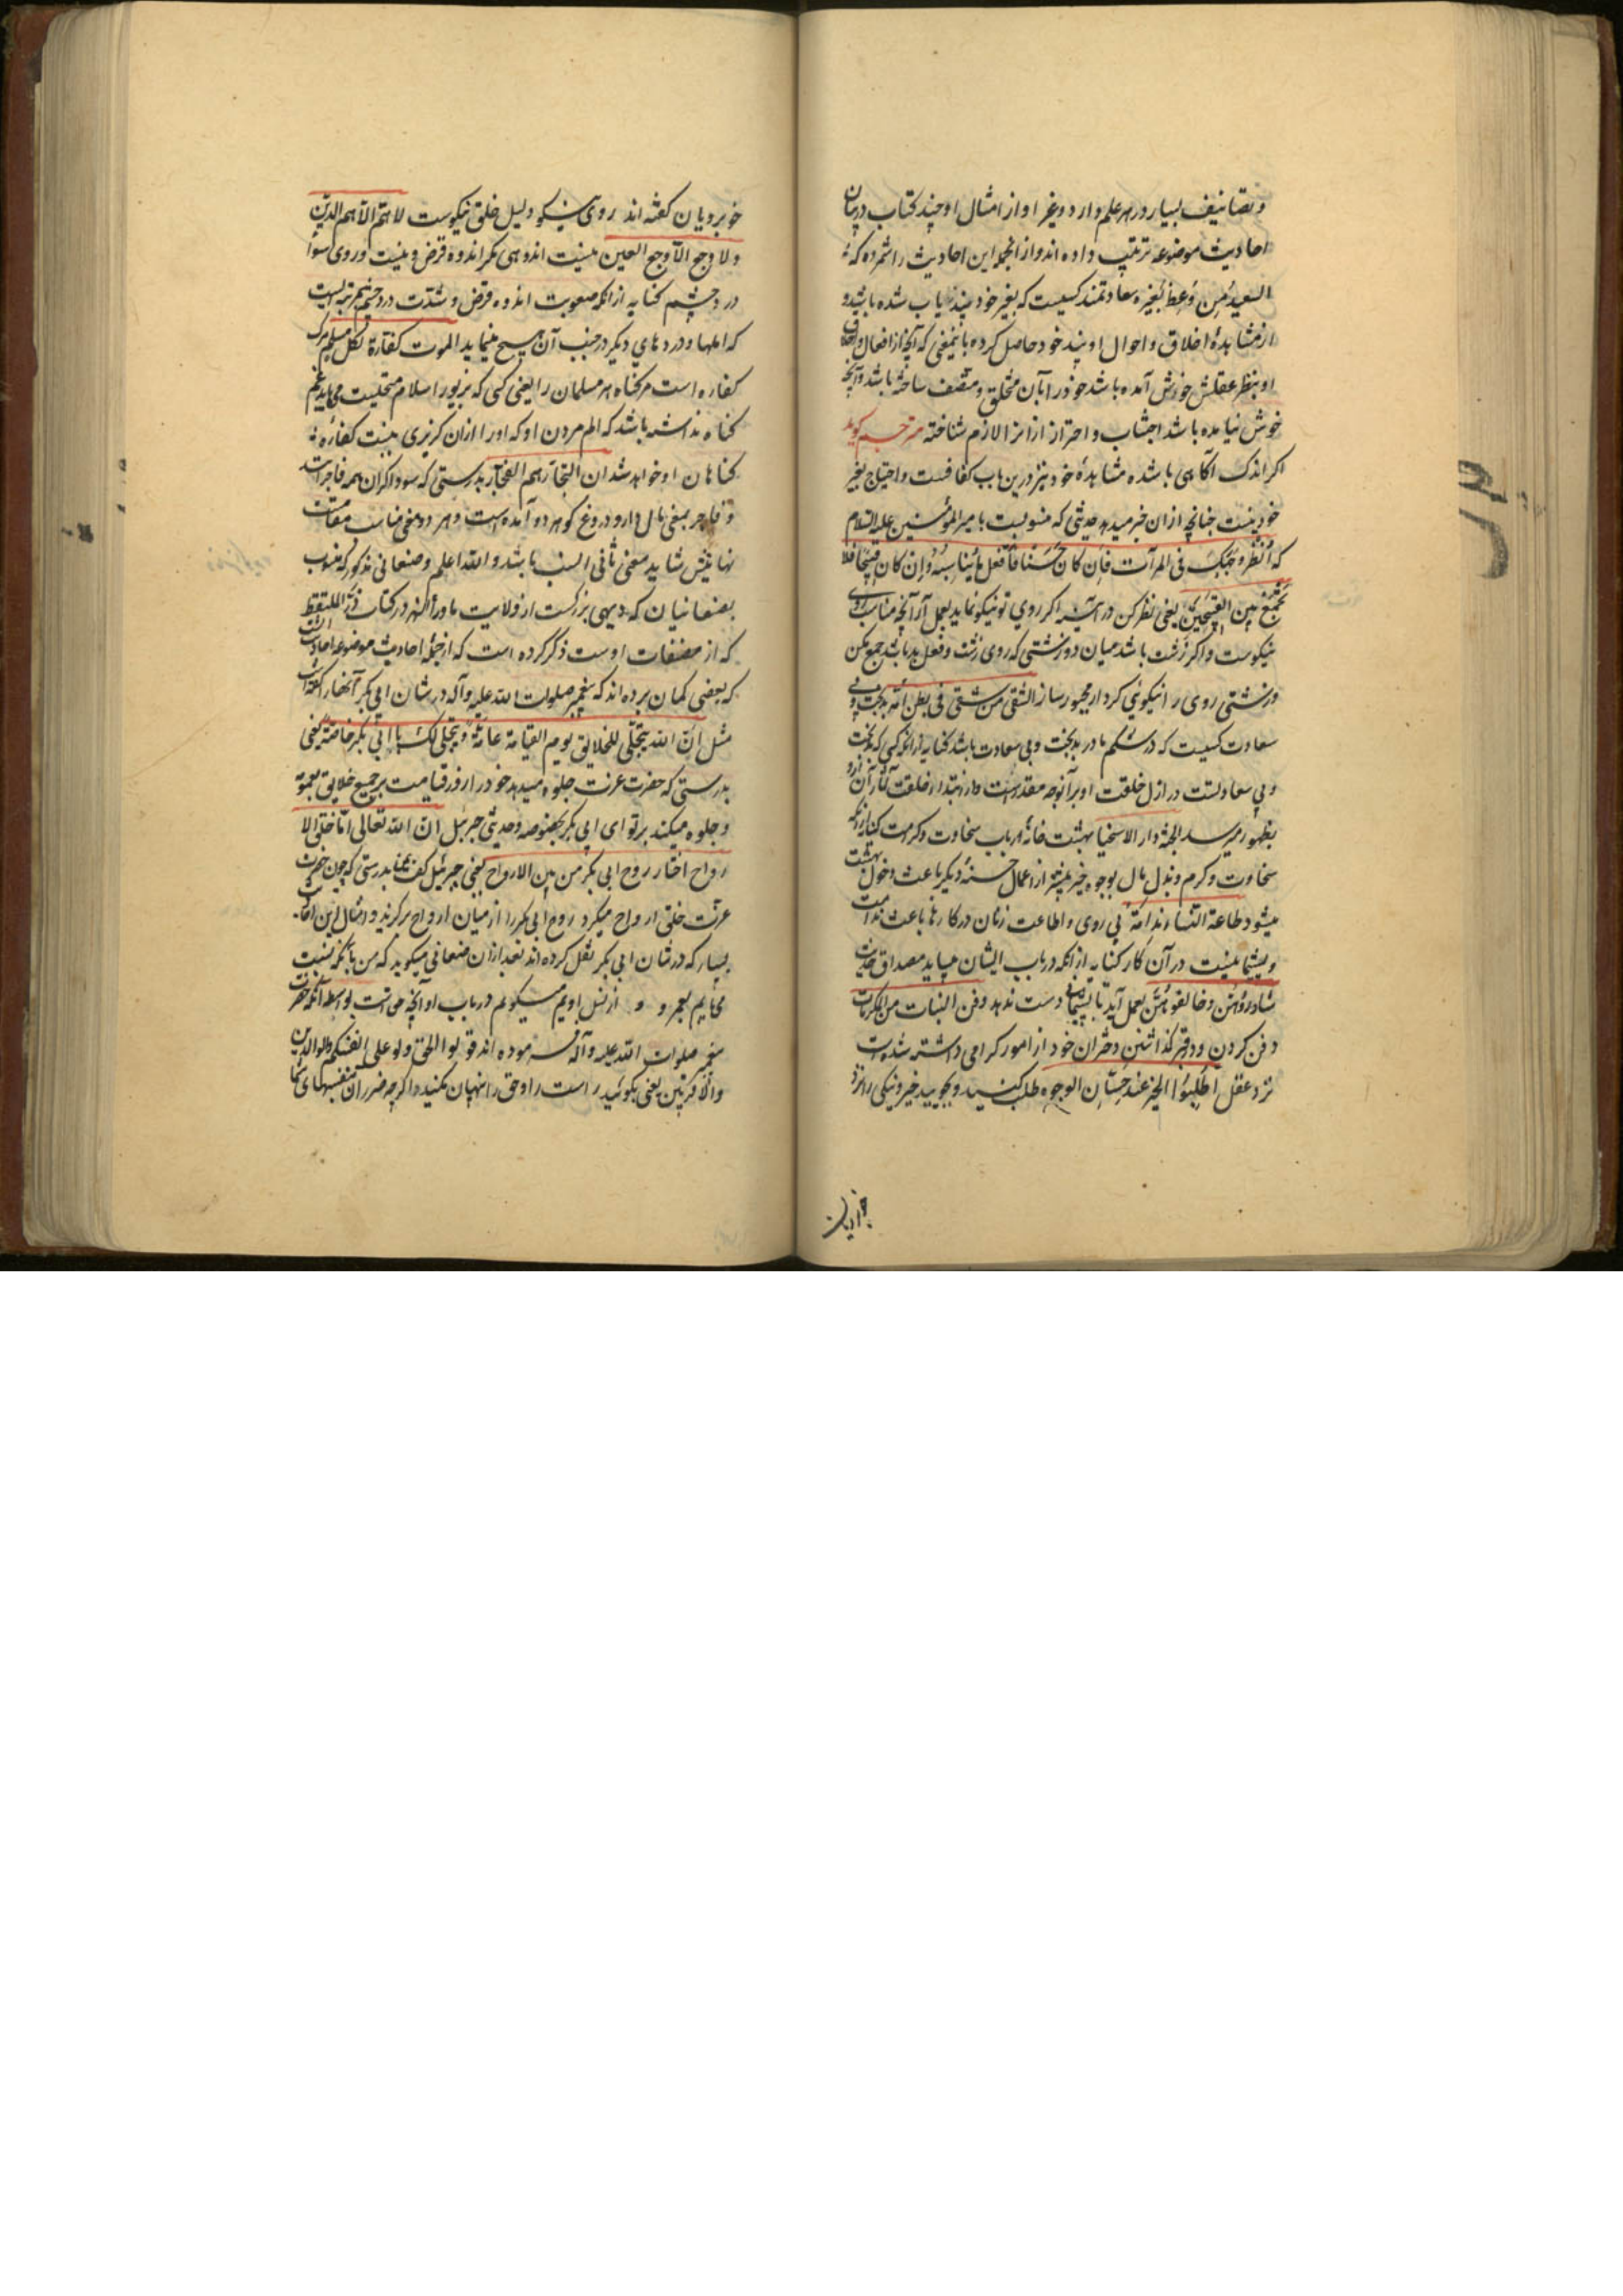 و تصانیف بسیار در هر علم دارد و غیر او از امثال او چند کتاب در بیان
احادیث موضوعه ترتیب داده اند و از انجمله این احادیث را شمرده که
السعید من وعظ بغیره سعادتمند کسیست که بغیر خود پند یاب شده باشد و
از مشاهدهٔ اخلاق و احوال او پند خود حاصل کرده باینمعنی که آنچه از افعال و اخلاق
او بنظر عقلش خوش آمده باشد خود را بآن متخلق و متصف ساخته باشد و آنچه
خوش نیامده باشد اجتناب و احتراز ازانرا لازم شناخته مترجم کوید
اکر اندک آکاهی باشد مشاهدهٔ خود نیز درین باب کفافست و احتیاج بغیر
خود نیست چنانچه ازان خبر میدهد حدیثی که منسوبست بامیر المؤمنین علیه السلام
که اُنظر وَجهَکَ فی المرآت فاِن کانَ حَسَناً فاَفعل مایُناسِبهُ وَاِن کان قبیحاً فلا
تَجمَع بین القبیحَین یعنی نظر کن در آینه اکر روی تو نیکو نماید بعمل آر آنچه مناسب روی
نیکوست و اکر زشت باشد میان دو زشتی که روی زشت و فعل بد باشد جمع مکن
و زشتی روی را نیکوئی کردار مجبور ساز الشقی من شقی فی بطن امّه بدبخت و بی
سعادت کسیست که در شکم مادر بدبخت و بی سعادت باشد کنایه از انکه کسی که بدبخت
و بی سعادتست در ازل خلقت او برآنوجه مقدر است و از ابتداء خلقت آثار آن ازو
بظهور میرسد الجنة دار الاسخیا بهشت خانهٔ ارباب سخاوت و کرمست کنایه ازانکه
سخاوت و کرم و بذل مال بوجوه خیر بیشتر از اعمال حسنهٔ دیکر باعث دخول بهشت
میشود طاعة النساء ندامَة پی روی و اطاعت زنان در کارها باعث ندامت
و پشیمانیست در آن کار کنایه از انکه در باب ایشان میباید مصداق حدیث
شاورُوهُنّ و خالفوهُنّ بعمل آید تا پشیمانی دست ندهد دفن البنات من المکرمات
دفن کردن و در قبر کذاشتن دختران خود از امور کرامی داشته شده است
نزد عقل اُطلُبُوا الخیر عند حِسَان الوجوه طلب کنید و بجویید خیر و نیکی را نزد
خوبرویان کفته اند روی نیکو دلیل خلق نیکوست لا همّ الّا همّ الدین
و لا وجع الّا وجع العین نیست اندوهی مکر اندوه قرض و نیست دردی سوا
درد چشم کنایه ازانکه صعوبت اندوه قرض و شدّت درد چشم بمرتبه ایست
که المها و دردهای دیکر در جنب آن هیچ مینماید الموت کفّارة لکلّ مسلم مرک
کفاره است مر کناه هر مسلمان را یعنی کسی که بزیور اسلام متحلیست می باید غم
کناه نداشته باشد که الم مردن او که او را ازان کریزی نیست کفارهٔ
کناهان او خواهد شد ان التجّار هم الفجّار بدرستی که سوداکران همه فاجرانند
و فاجر بمعنی مال دار و دروغ کو هر دو آمده است و هر دو معنی مناسب مقامست
نهایتش شاید معنی ثانی انسب باشد و الله اعلم و صنعانی مذکور که منسوب
بصنعانیان که دیهی بزرکست از ولایت ماوراء النهر در کتاب درّ الملتقط
که از مصنفات اوست ذکر کرده است که از جمله احادیث موضوعه احادیث است
که بعضی کمان برده اند که پیغمبر صلوات الله علیه و آله در شان ابی بکر آنها را کفته است
مثل انّ الله یتجلّی للخلایق یوم القیامة عامّةً و یتجلّی لک یا ابی بکر خاصّةً یعنی
بدرستی که حضرت عزت جلوه میدهد خود را روز قیامت بر جمیع خلایق بعموم
و جلوه میکند بر تو ای ابی بکر بخصوصه و حدیثی جبرئیل ان الله تعالی لمّا خلق الا
رواح اختار روح ابی بکر من بین الارواح یعنی جبرئیل کفت بدرستی که چون حضرت
عزّت خلق ارواح میکرد روح ابی بکر را از میان ارواح برکزید و امثال این احادیث
بسیار که در شان ابی بکر نقل کرده اند بعد ازان صنعانی میکوید که من باآنکه نسبت
می یابم بعمر و از نسل اویم میکویم در باب او آنچه حق است بواسطه آنکه حضرت
پیغمبر صلوات الله علیه و آله فرموده اند قولوا الحق و لو علی انفسکم والوالدین
والاقربین یعنی بکوئید راست را و حق را پنهان مکنید و اکر چه ضرر آن بنفسهای شما